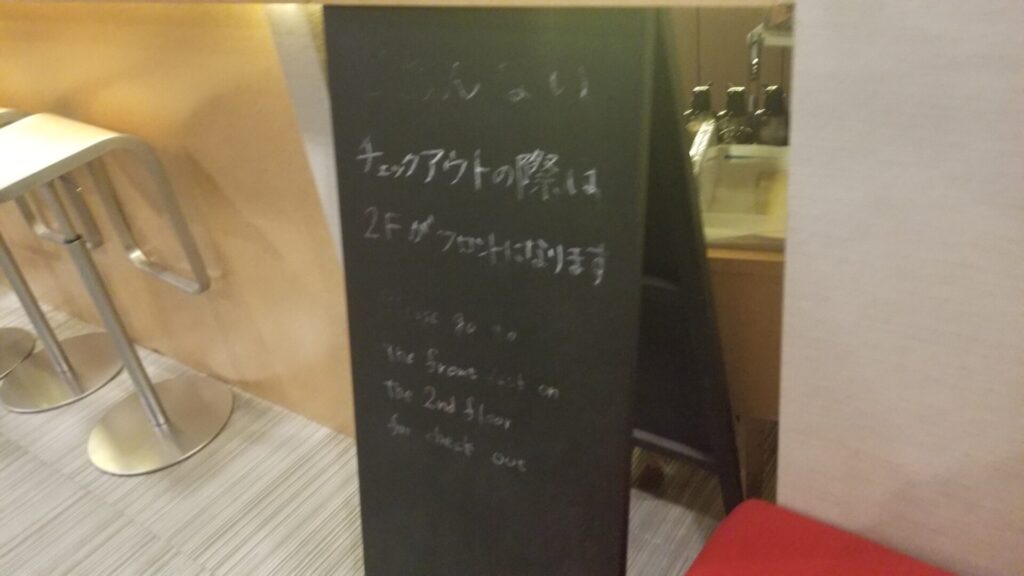 チェックアウトの際は
2Fがフロントになります
go to
the front desk on
the 2nd floor
for check out